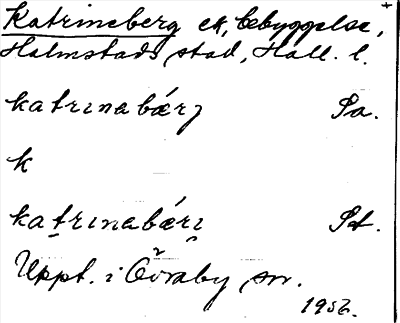 Katrineberg ek, bebyggelse,
Halmstads stad, Hall. l.
katrinabærj Sa.
k
katrinabæri St.
Uppt. i Övraby sn.
1952.